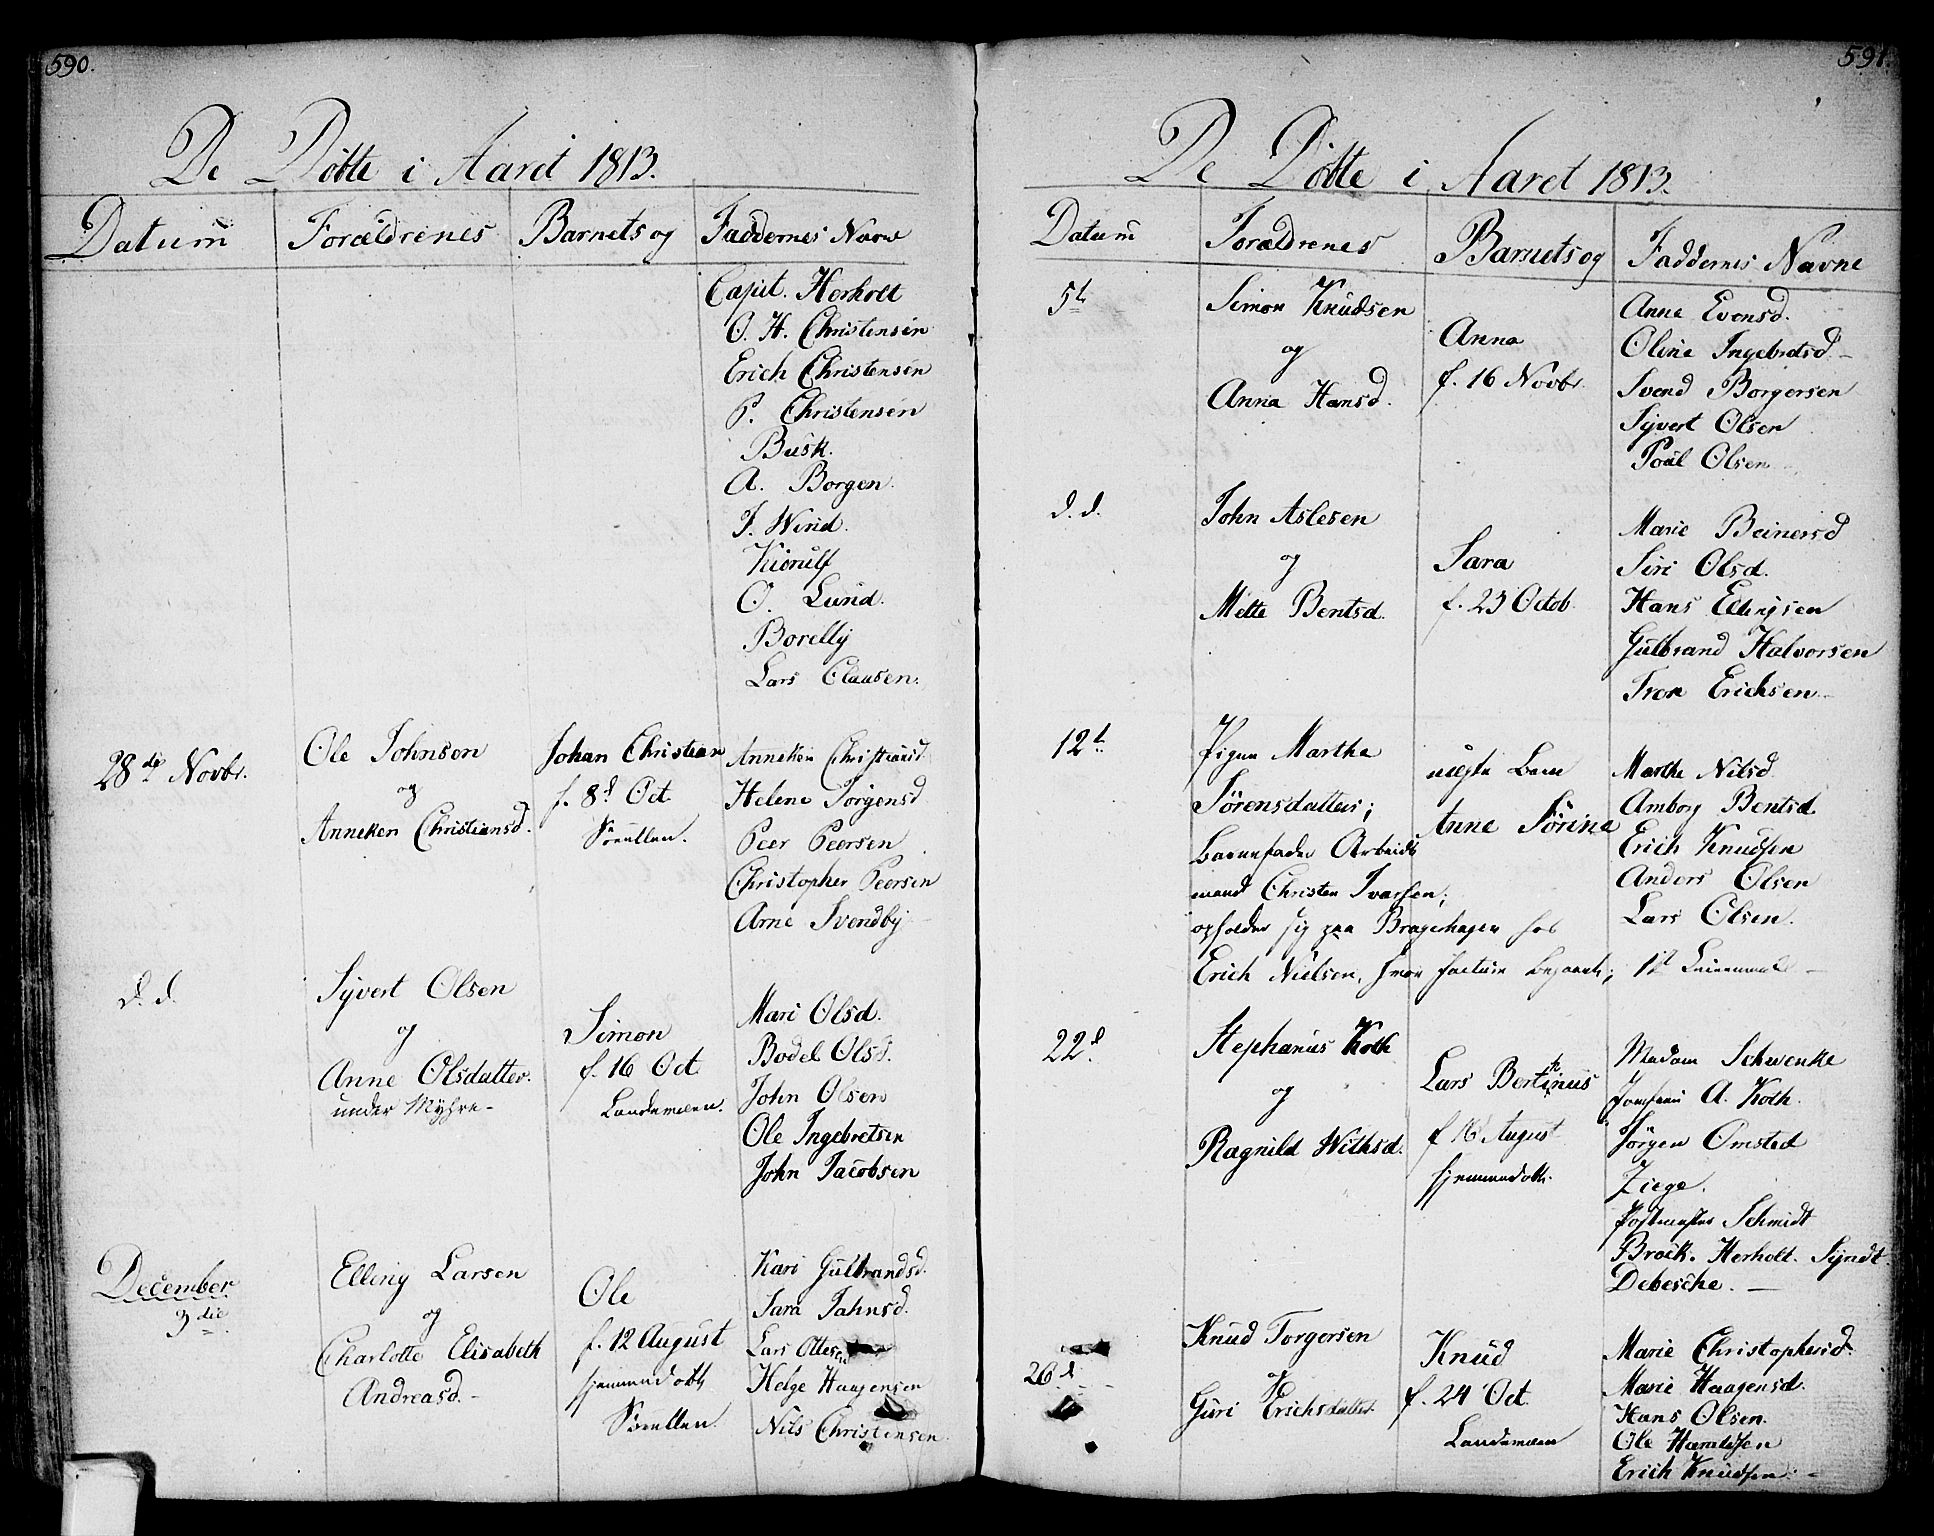 590.
De Döbte i Aaret 1813.
Datum Forældrenes Barnets og Faddernes Navne
Capit. Herholt
O. H. Christensen
Erich Christensen
P. Christensen
Busk.
A. Borgen.
J. Wind.
Kierulf
O. Lund.
Borelly
Lars Clausen.
28de Novbr.
Ole Johnsen
og
Anneken Christiansd.
Johan Christian
f. 8d Oct.
Anneken Christiansd.
Helene Jörgensd
Peer Peersen
Christopher Peersen
Arne Svendby
d. d.
Syvert Olsen
og
Anne Olsdatter.
under Myhre
Simon
f. 16 Oct
Landeveien.
Mari Olsd.
Bodel Olsd.
John Olsen
Ole Ingebretsen
John Jacobsen
December
3die
Elling Larsen
og
Charlotte Elisabeth
Andreasd.
Ole
f. 12 August
hjemmedöbt
Kari Gulbrandsd.
Sara Jahnsd.
Lars Ottesen
Helge Haagensen
Nils Christensen.
591.
De Döbte i Aaret 1813.
Datum Forældrenes Barnets og Faddernes Navne
5t
Simon Knudsen
og
Anna Hansd.
Anna
f. 16 Novbr.
Anne Evensd.
Oline Ingebretsd
Svend Borgersen
Syvert Olsen
Poul Olsen
d. d.
John Aslesen
og
Mette Bentsd.
Sara
f. 23 Octob.
Marie Beinersd
Siri Olsd.
Hans Ellingsen
Gulbrand Halvorsen
Iver Erichsen
12t
Pigen Marthe
Sörensdatter;
Barnefader Arbeids
mand Christen Ivarsen;
opholder sig paa Bragehagen hos
Erich Nielsen,
uægte Barn
Anne Sörine
Marthe Nilsd.
Amborg Bentsd
Erich Knudsen
Anders Olsen
Lars Olsen.
1st Leiermaal
22d
Stephanus Koth
og
Ragnild Withsd.
Lars Bertinus
f. 16 August
hjemmedöbt.
Madam Schwenke
Jomfru A. Koth.
Jörgen Omsted
Ziege.
Postmester Schmidt
Brock. Herholt. Syndt
Debesche.
26d
Knud Torgersen
og
Guri Erichsdatter.
Knud
f. 24 Oct.
Landeveien
Marie Christophersd.
Marie Haagensd.
Hans Olsen.
Ole Haraldsen
Erich Knudsen.